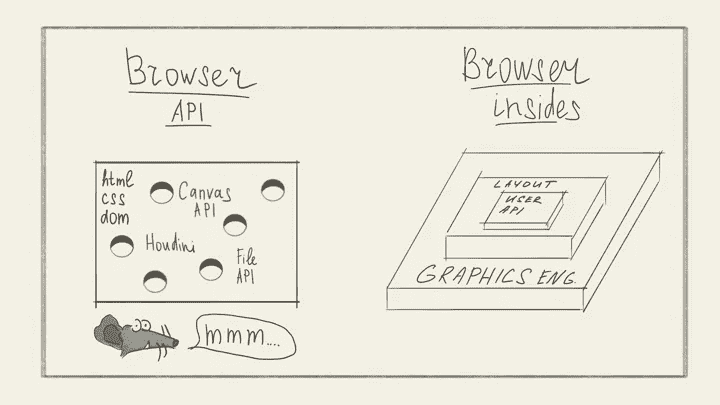 Browser
API
html
css
dom
Canvas
API
Houdini
File
API
mmm....
Browser
insides
LAYOUT
USER
API
GRAPHICS ENG.